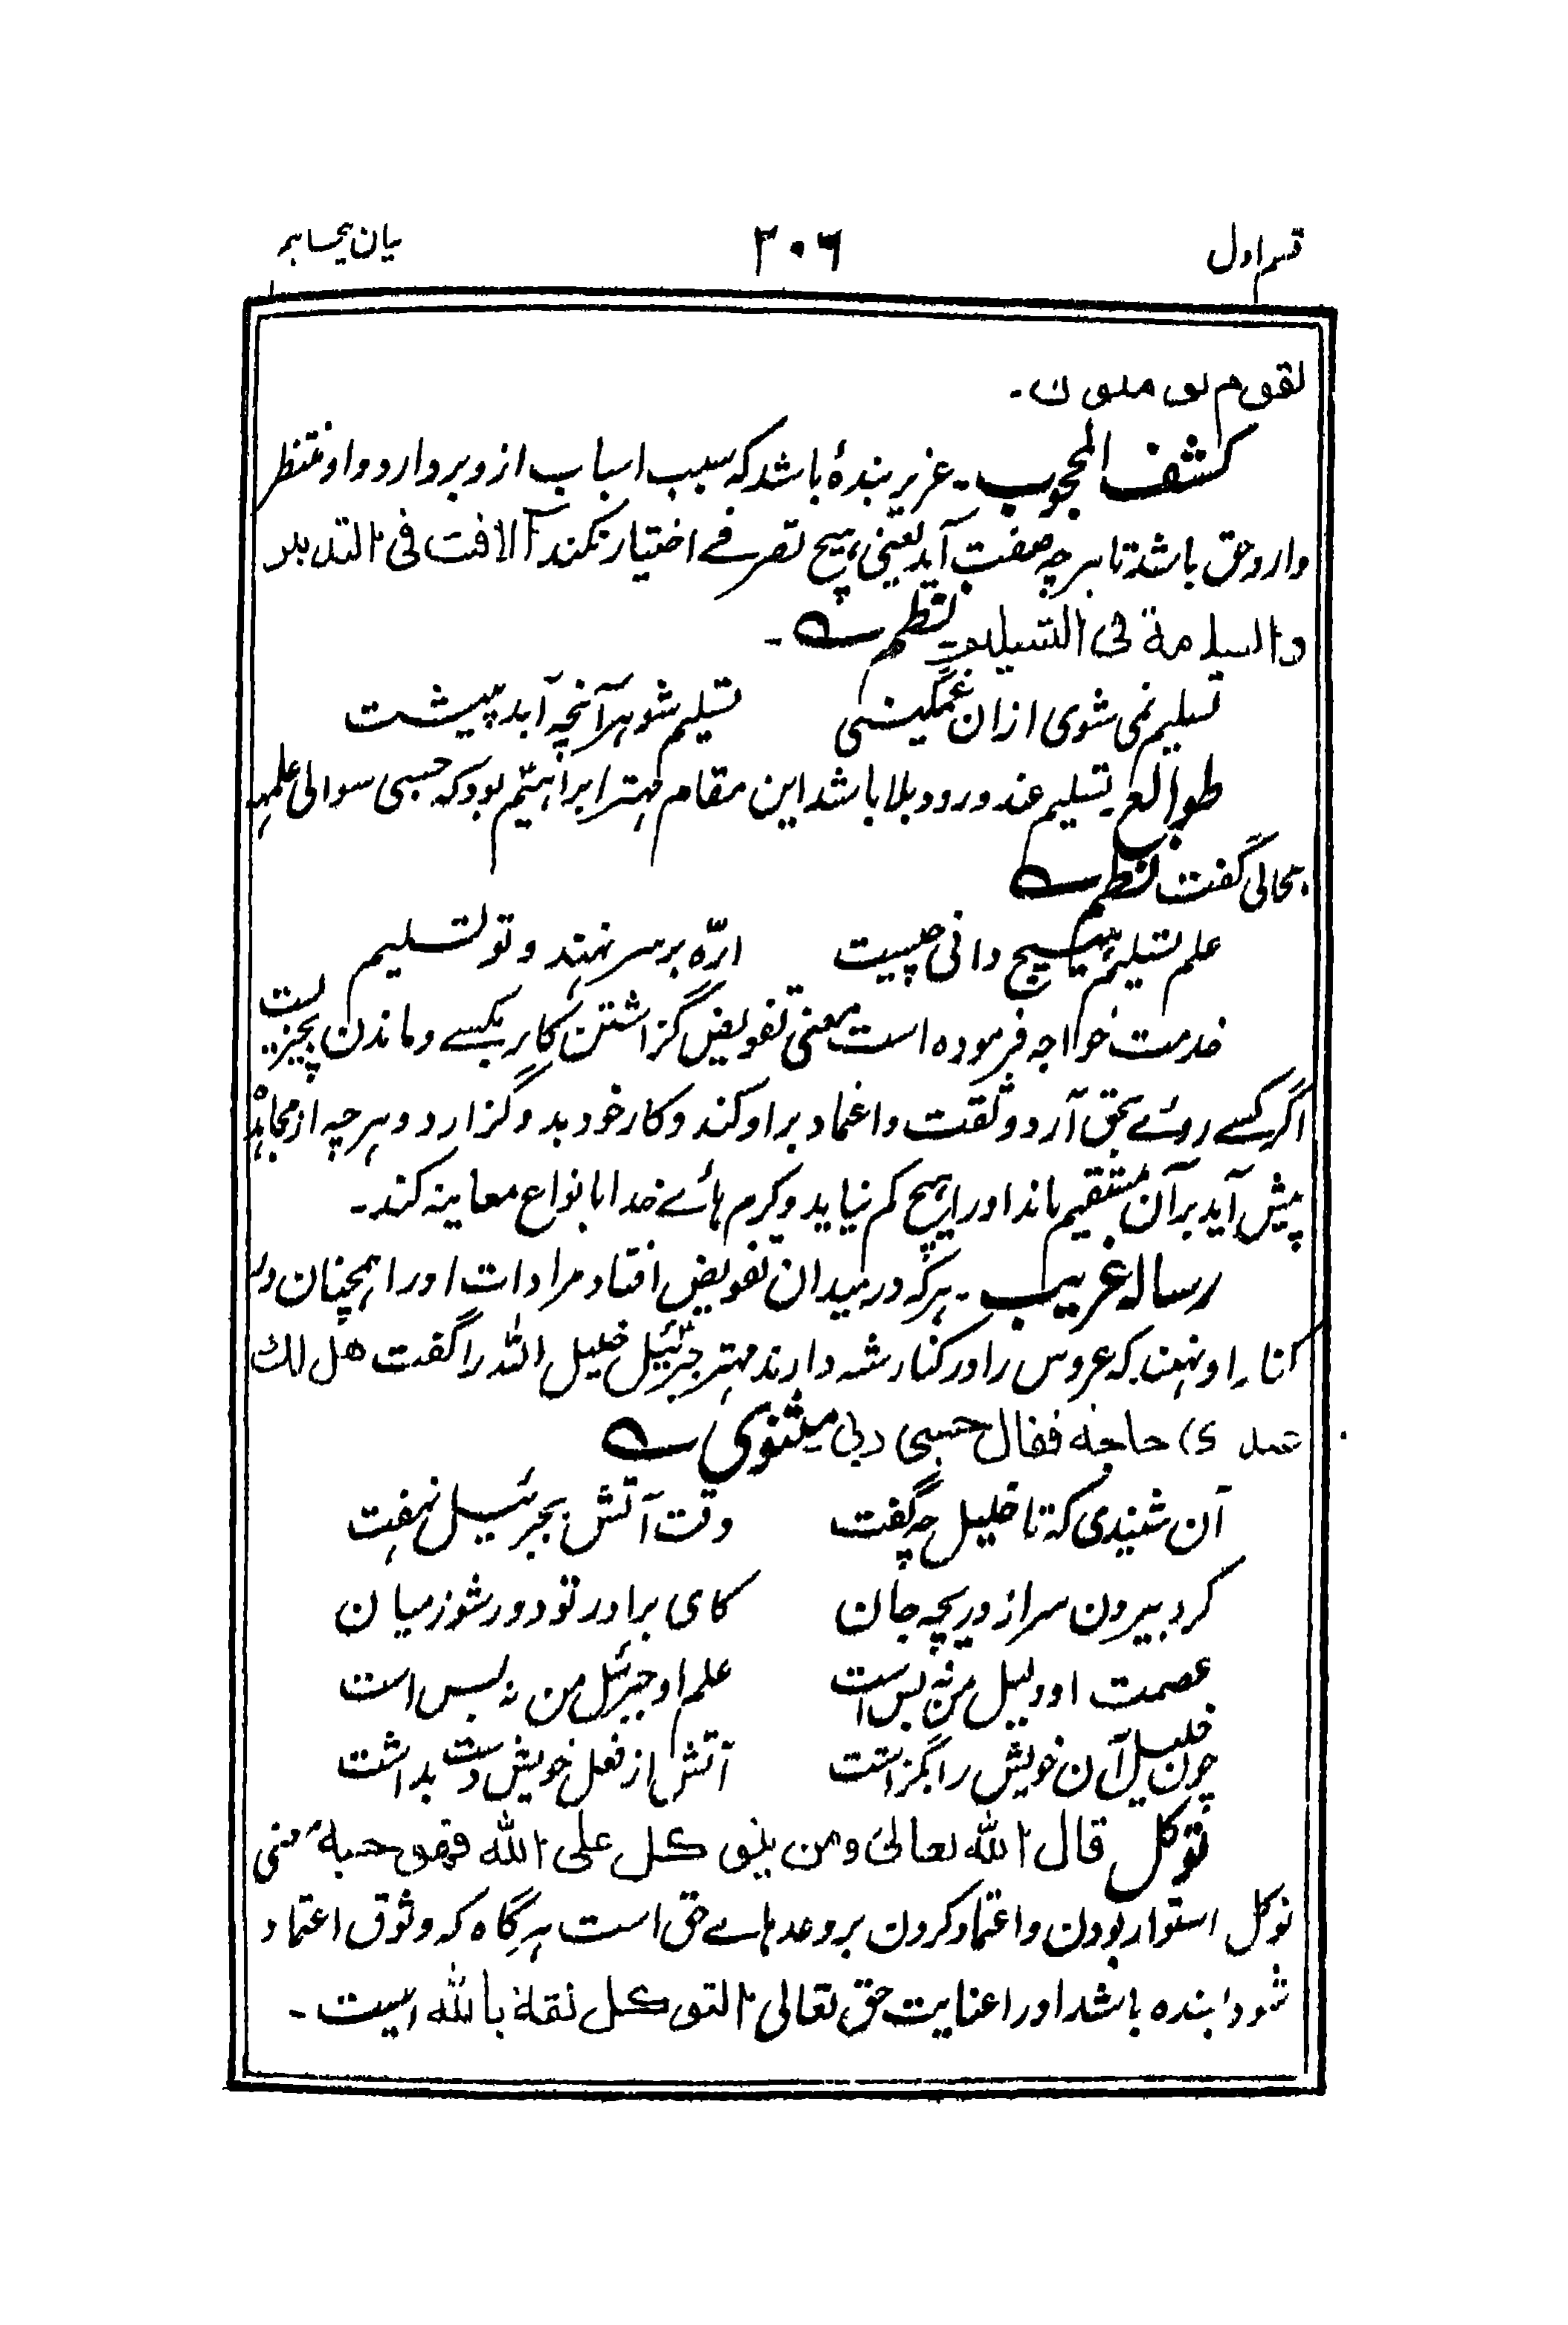 قسم اول ٣٠٦ بیان پنجاهم
لقوم يومنون-
کشف المحجوب- عزیز بندۂ باشد که سبب اسباب ازو بردارد و او منتظر
وارد حق باشد تا بر چه صفت آید یعنی هیچ تصرفے اختیار نکند الافت فی التدبیر
والسلامة فی التسلیم نظم ؎ -
تسلیم نمی شوی ازان غمگینی تسلیم شو هر آنچه آید پیشت
طوالع- تسلیم عند ورود بلا باشد این مقام مهتر ابراهیم بود که حسبی سوالی علمه
بحالی گفت نظم ؎
علم تسلیم هیچ دانی چیست ارّه بر سر نهند و تو تسلیم
خدمت خواجه فرموده است معنی تفویض گزاشتن کار بکسے و ماندن بچیزیست
اگر کسے روئے بحق آرد و ثقت و اعتماد بر او کند و کار خود بدو گزارد و هر چه از مجاهده
پیش آید بر آن مستقیم ماند اورا هیچ کم نیاید و کرم هائے خدا بانواع معاینه کند-
رساله غریب- هر که در میدان تفویض افتاد مرادات اورا همچنان در
کنار او نهند که عروس را در کنار شه دارند مهتر جبرئیل خلیل الله را گفت هل لك
حاجة فقال حسبی ربی مثنوی ؎
آن شنیدی که تا خلیل چه گفت وقت آتش بجبرئیل نهفت
کرد بیرون سر از دریچه جان کای برادر تو دور شو زمیان
عصمت او دلیل من نه بس است علم او جبرئیل من نه بس است
چون خلیل آن خویش را بگزاشت آتش از فعل خویش دست بداشت
توکل قال الله تعالی ومن یتوکل علی الله فهو حسبه معنی
توکل استوار بودن و اعتماد کردن بر وعدهاے حق است هر گاه که وثوق اعتماد
شود بنده باشد اورا عنایت حق تعالی التوکل ثقة بالله است-